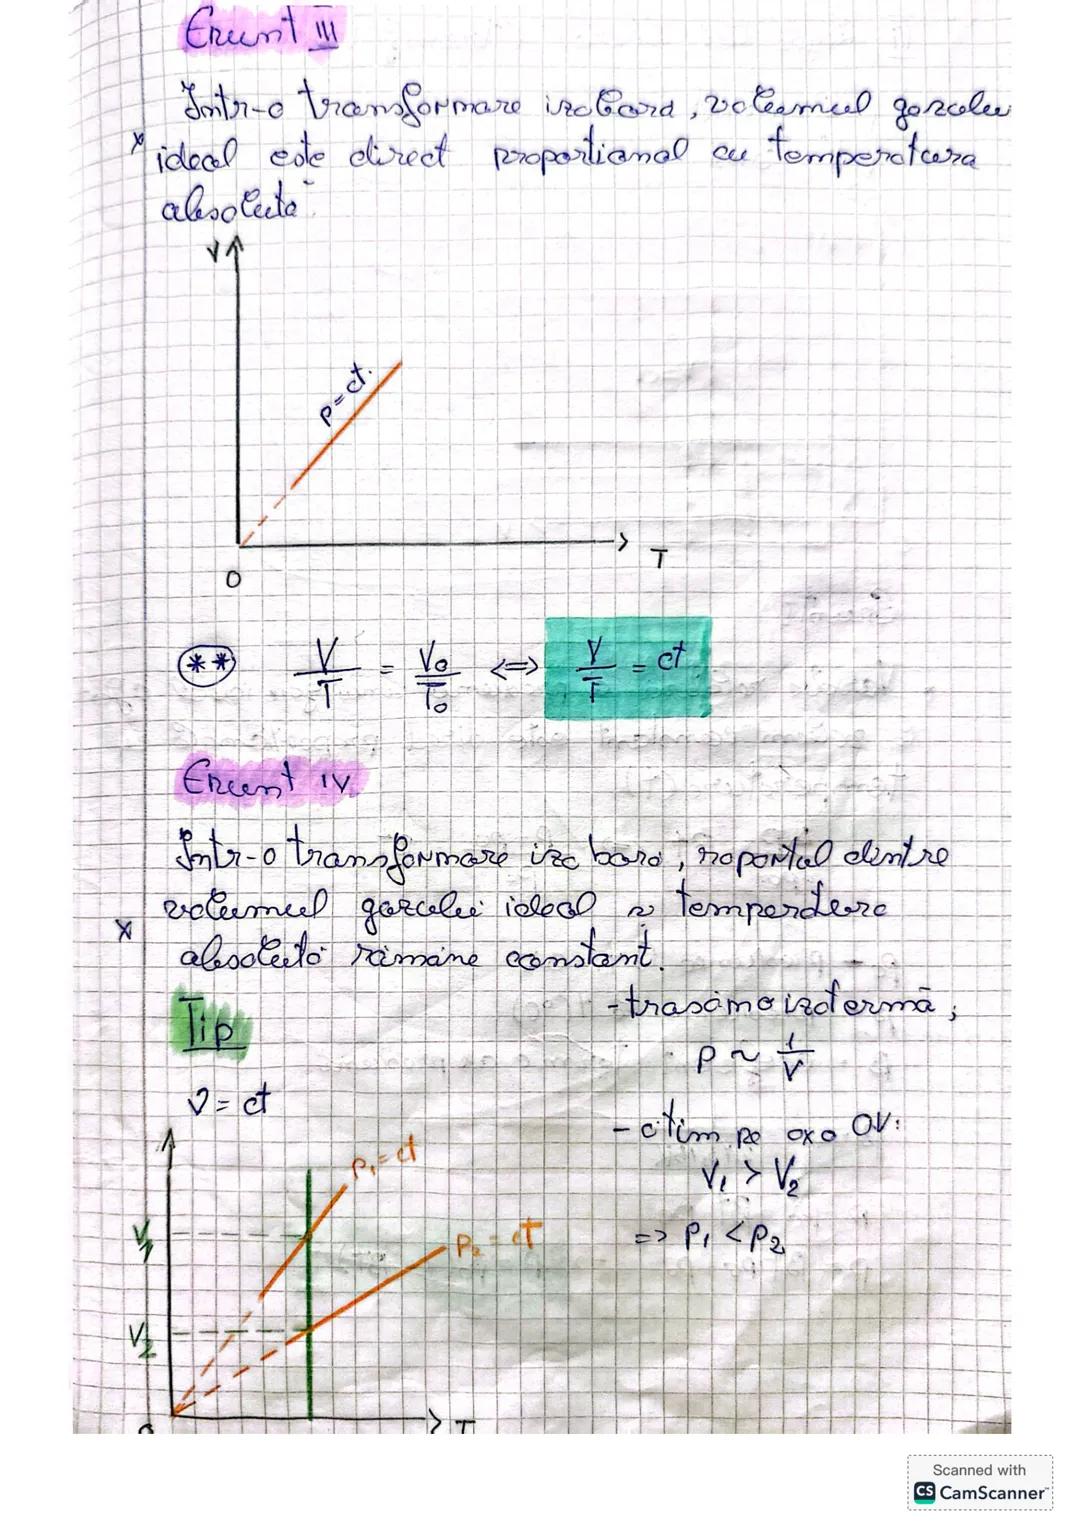 Enunț III
Într-o transformare izobară, volumul gazului
ideal este direct proporțional cu temperatura
absolută.
V
p=ct.
O
T
** V/T = V₀/T₀ <=> V/T = ct
Enunț IV.
Într-o transformare izobară, raportul dintre
volumul gazului ideal și temperatura
absolută rămâne constant.
Tip
ν = ct
- trasăm o izotermă;
p ~ 1/V
- citim pe axa OV:
V₁ > V₂
=> p₁ < p₂
p₁ = ct
V₁
p₂ = ct
V₂
T
Scanned with
CS CamScanner